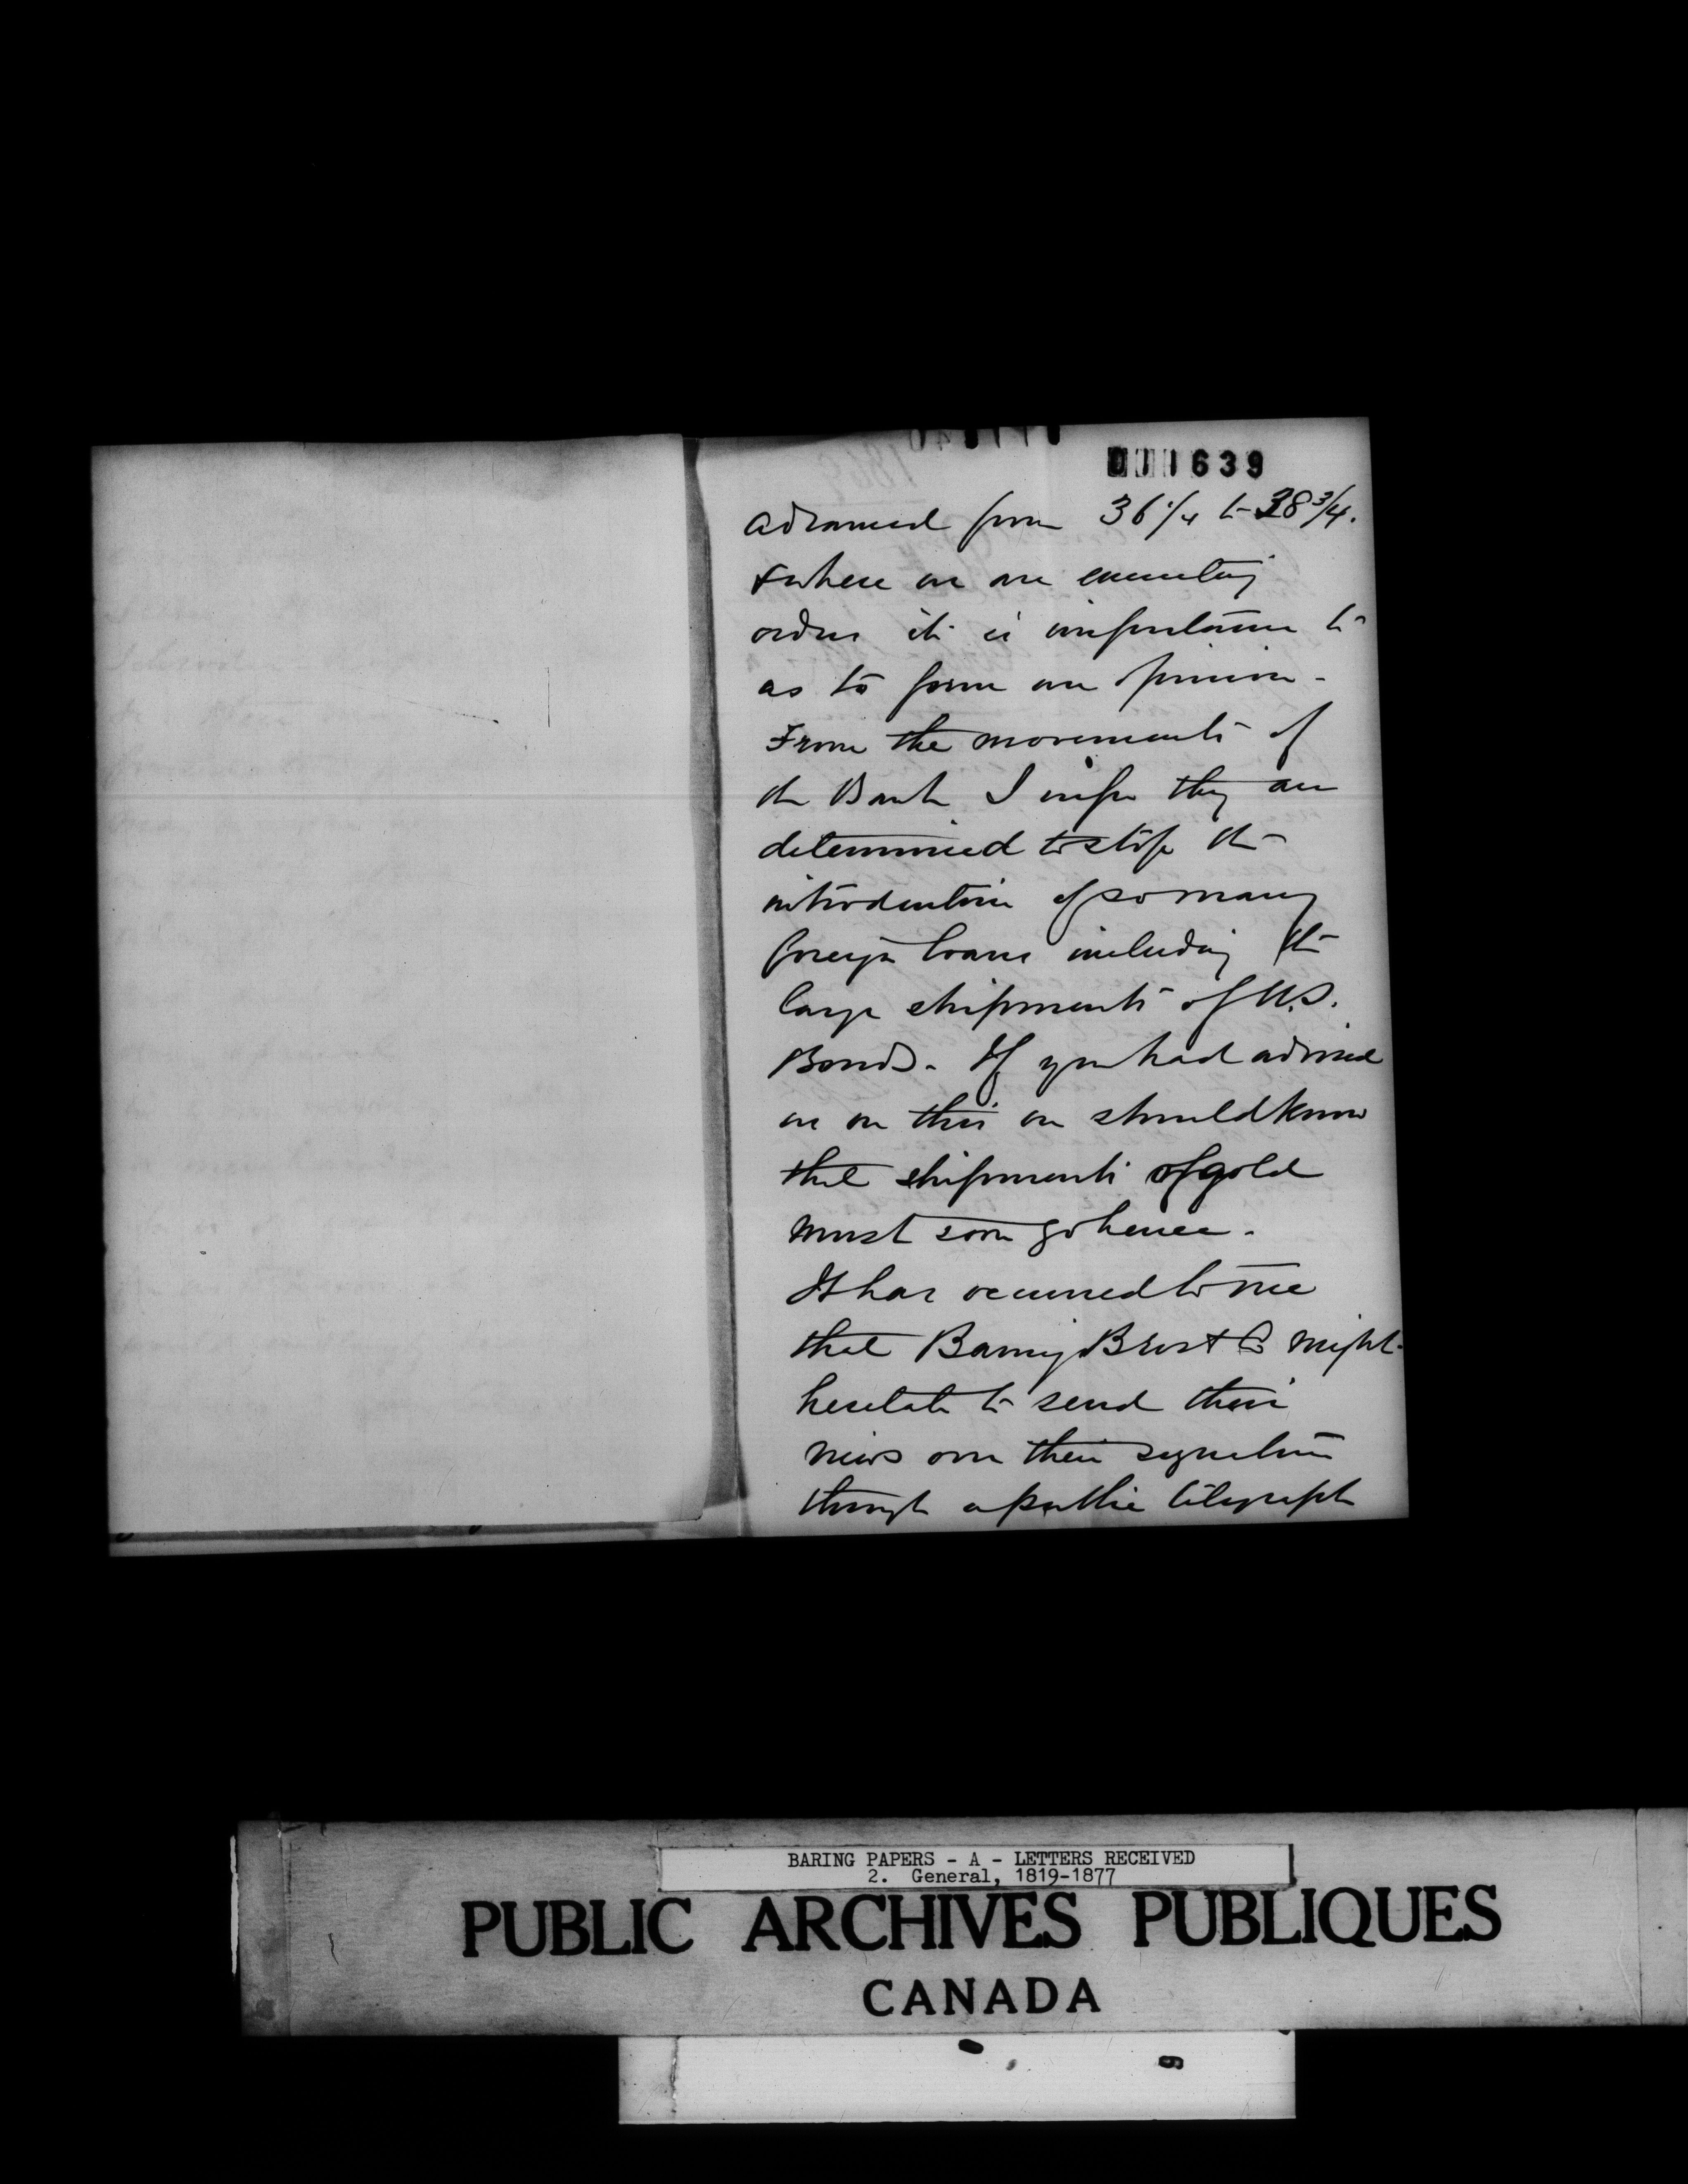 011639
advanced from 36 1/4 to 38 3/4.
& where we are executing
orders it is important to
as to form an opinion -
From the movements of
the Bank I infer they are
determined to stop the
introduction of so many
foreign loans including the
large shipments of U.S.
Bonds. If you had advised
us on this we should know
that shipments of gold
must soon go hence.
It has occurred to me
that Baring Bros & Co might
hesitate to send their
views over their signature
through a public telegraph
BARING PAPERS - A - LETTERS RECEIVED
2. General, 1819-1877
PUBLIC ARCHIVES PUBLIQUES
CANADA